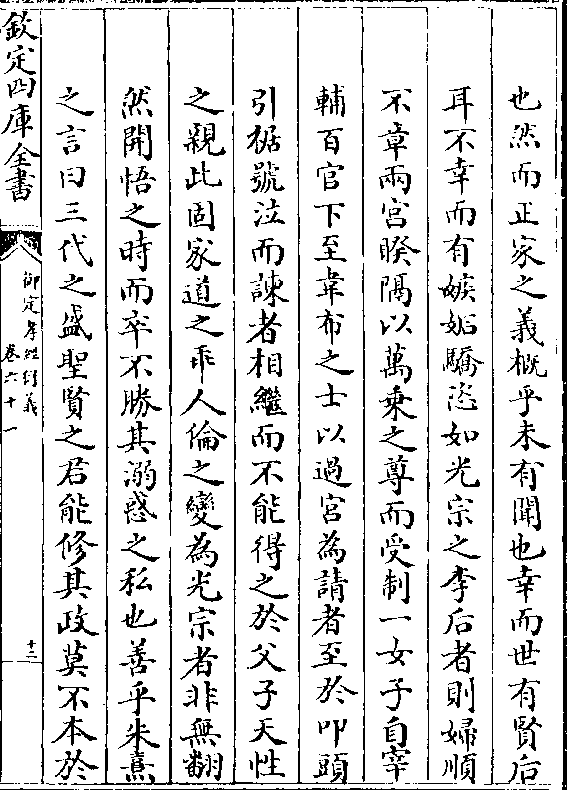 也然而正家之義概乎未有聞也幸而世有賢后
耳不幸而有嫉妬驕恣如光宗之李后者則婦順
不章兩宮睽隔以萬乗之尊而受制一女子自宰
輔百官下至韋布之士以過宮為請者至於叩頭
引裾號泣而諫者相繼而不能得之於父子天性
之親此固家道之乖人倫之變為光宗者非無翻
然開悟之時而卒不勝其溺惑之私也善乎朱熹
之言曰三代之盛聖賢之君能修其政莫不本於
欽定四庫全書
御定孝經衍義
卷六十一
十三